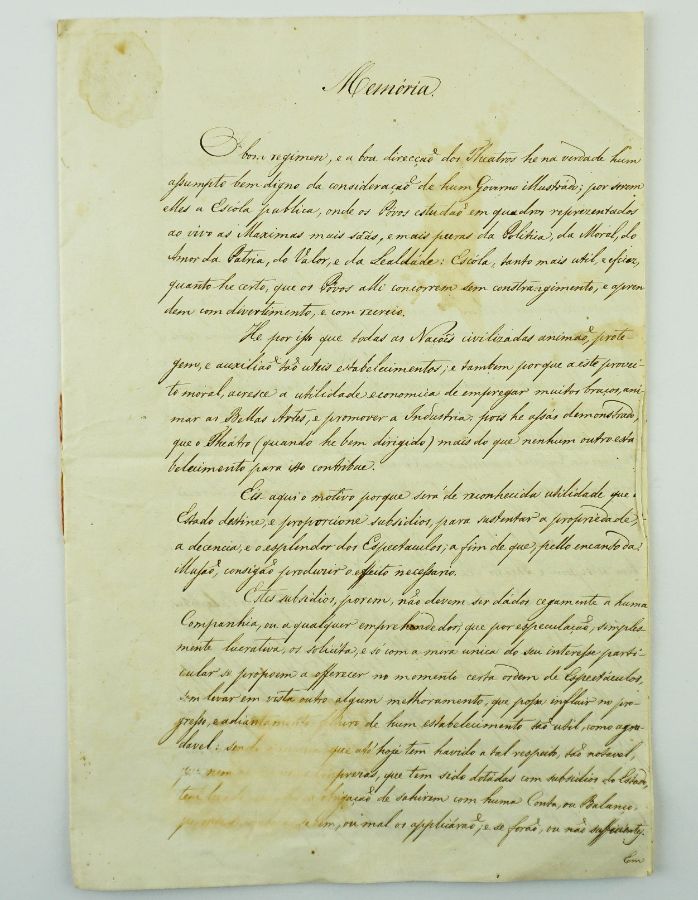 Memória.
O bom regimen, e a boa direcção dos Theatros he na verdade hum
assumpto bem digno da consideração de hum Governo illustrado; por serem
elles a Escóla publica, onde os Póvos estudão em quadros representados
ao vivo as Maximas mais sãas, e mais puras da Politica, da Moral, do
Amor da Patria, do Valor, e da Lealdade: Escóla, tanto mais util, e efficaz,
quanto he certo, que os Póvos alli concorrem sem constrangimento, e apren
dem com divertimento, e com recreio.
He por isso que todas as Nações civilizadas animão, prote
gem, e auxilião tão uteis estabelecimentos; e tambem porque a este provei
to moral, acresce a utilidade economica de empregar muitos braços, ani
mar as Bellas Artes, e promover a Industria: pois he assás demonstrado,
que o Theátro (quando he bem dirigido) mais do que nenhum outro esta
belecimento para isso contribue.
Eis aqui o motivo porque será de reconhecida utilidade que o
Estado destine, e proporcione subsidios, para sustentar a propriedade,
a decencia, e o esplendor dos Espectaculos; a fim de que, pello encanto da
Illusão, consigão produzir o effeito necessario.
Estes subsidios, porem, não devem ser dádos cegamente a huma
Companhia, ou a qualquer emprehendedor, que por especulação, simples
mente lucrativa, os solicita, e só com a mira unica do seu interesse parti
cular se propoem a offerecer no momento certa ordem de Espectaculos,
sem levar em vista outro algum melhoramento, que possa influir no pro
gresso, e adiantamento futuro de hum estabelecimento tão util, como agra
davel: sendo que até hoje tem havido a tal respeito, tão notavel,
que nem emprezas, que tem sido dotadas com subsidios do Estado,
tem obrigação de sahirem com huma Conta, ou Balanço,
bem, ou mal os applicárão, e se forão, ou não sufficientes.
Com